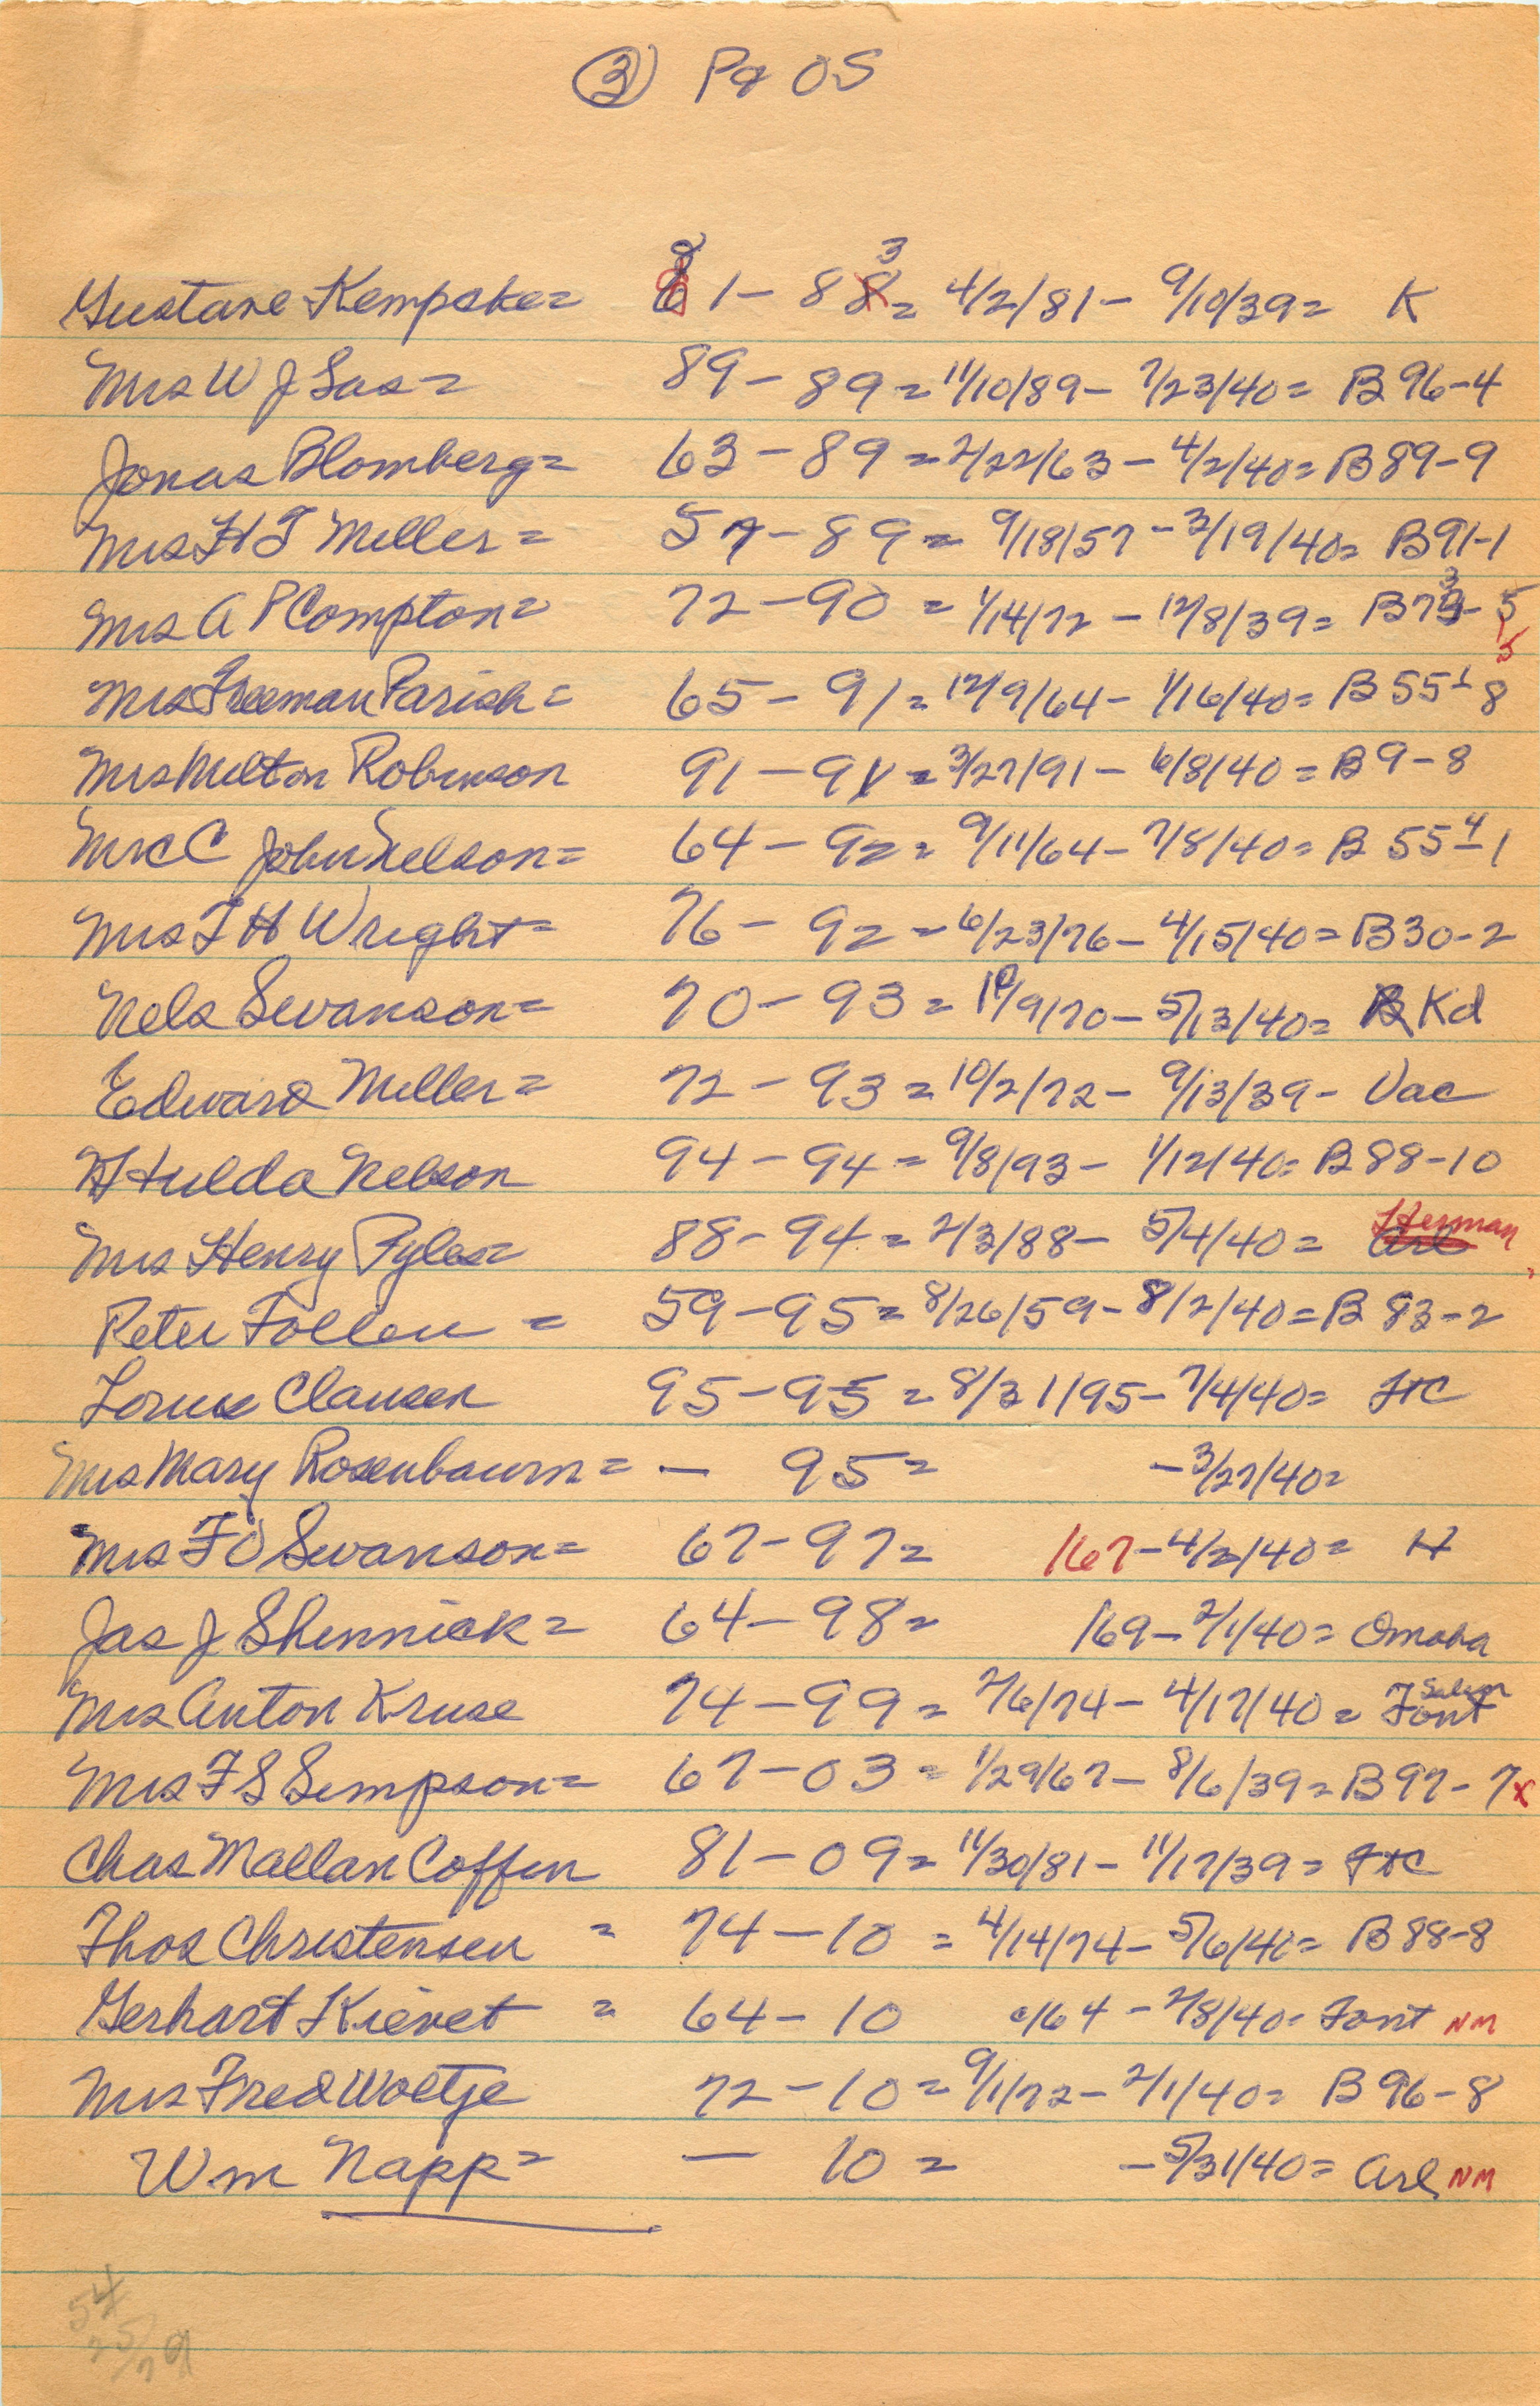 ③ Pg OS
Gustave Kempcke= 81-883= 4/2/81- 9/10/39= K
Mrs W J Sas= 89-89= 11/10/89- 7/23/40= B 96-4
Jonas Blomberg= 63-89= 2/22/63- 4/2/40= B89-9
Mrs H T Miller= 57-89= 9/18/57-3/19/40= B91-1
Mrs A P Compton= 72-90= 1/14/72- 12/8/39= B73-5
Mrs Freeman Parish= 65-91= 12/9/64- 1/16/40= B 55 1-8
Mrs Milton Robinson 91-91= 3/27/91- 6/8/40= B 9-8
Mrs C John Nelson= 64-92= 9/11/64- 7/8/40= B 55 4-1
Mrs T H Wright= 76-92= 6/23/76- 4/15/40= B30-2
Nels Swanson= 70-93= 10/9/70- 5/13/40= Kd
Edward Miller= 72-93= 10/2/72- 9/13/39- Vac
Hulda Nelson 94-94= 9/8/93- 1/12/40= B 88-10
Mrs Henry Pyles= 88-94= 2/3/88- 5/4/40= Arl Herman
Peter Follen= 59-95= 8/26/59- 8/2/40= B 83-2
Clausen 95-95= 8/31/95- 7/4/40= FtC
Mrs Mary Rosenbaum= - 95= -3/27/40=
Mrs F O Swanson= 67-97= /67-4/2/40= H
Jas J Shennick= 64-98= /69-2/1/40= Omaha
Mrs Anton Kruse 74-99= 2/6/74- 4/17/40= Font Salem
Mrs F S Simpson= 67-03= 1/29/67- 8/6/39= B97-7x
Chas Mallan Coffin 81-09= 11/30/81- 11/17/39= FtC
Thos Christensen = 74-10= 4/14/74- 5/6/40= B 88-8
Gerhart Kievet = 64-10 /64-2/8/40= Font NM
Mrs Fred Woetje 72-10= 9/1/72- 2/1/40= B 96-8
Wm Napp= - 10= -5/31/40= Arl NM
54
25
79